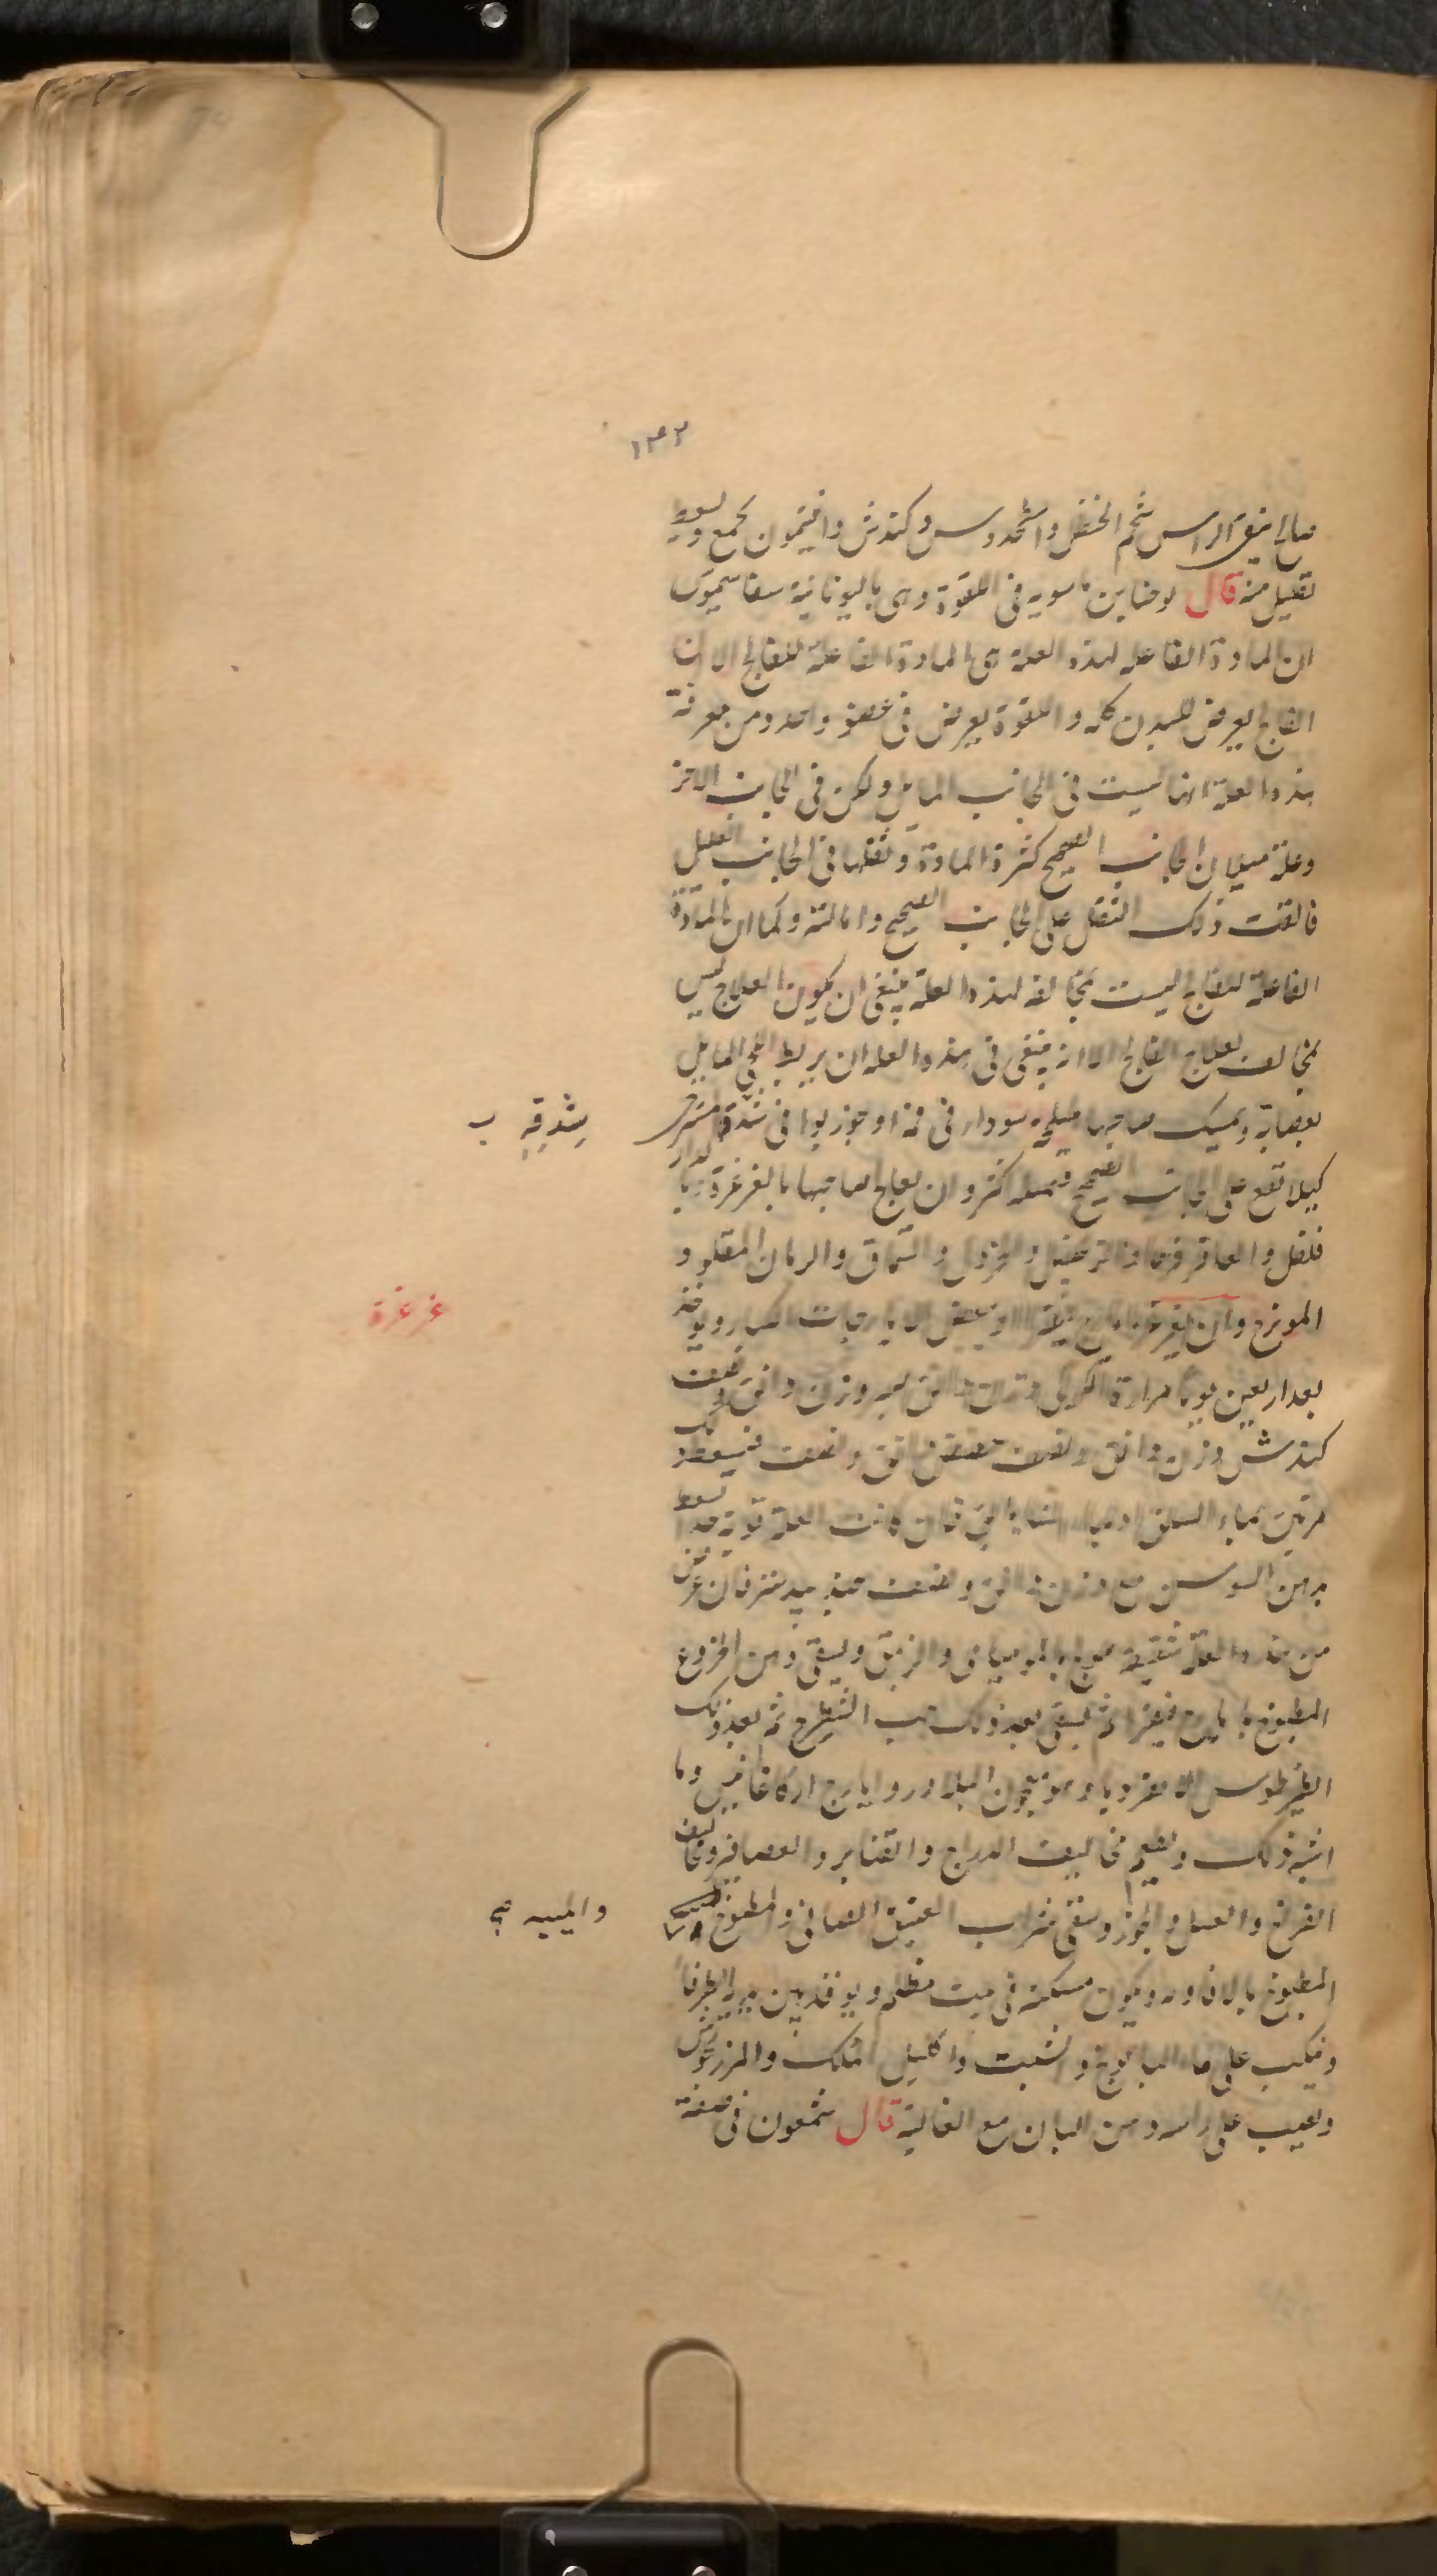 ١٤٢
صالح ينقى الراس شحم الحنظل واسطوخدوس وكندش وافتيمون يجمع ويسعط
بقليل منه قال يوحنا بن ماسويه فى اللقوة وهى باليونانية
ان المادة الفاعلة لهذه العلة هى المادة الفاعلة للفالج الا ان
الفالج يعرض للبدن كله واللقوة يعرض فى عضو واحد ومن معرفة
هذه العلة انها ليست فى الجانب المايل ولكن فى الجانب الاخر
وعلة ميلان الجانب الصحيح كثرة المادة وثقلها فى الجانب العليل
فالقت ذلك الثقل على الجانب الصحيح وامالته وكما ان المادة
الفاعلة للفالج ليست بمخالفة لهذه العلة ينبغى ان يكون العلاج ليس
بمخالف لعلاج الفالج الا انه ينبغى فى هذه العلة ان يربط اللحى المايل
بعصابة ويمسك صاحبها هليلجه سوداء فى فمه او جوز بوا فى شدقه
شدقه ب
كيلا تقع على الجانب الصحيح فتميله اكثر وان يعالج صاحبها بالغرغرة بالدار
فلفل والعاقرقرحا والزنجبيل والخردل والسماق والرمان المقلو و
المويزج وان يغرغر بايارج فيقرا او ببعض الايارجات الكبار ويؤخذ
غرغرة
بعد اربعين يوما مرارة الكركى وزن دانق صبر وزن دانق ونصف
كندش وزن دانق ونصف حضض دانق ونصف فيسعط بذلك
مرتين بماء السلق او بماء الشاهدانج فان كانت العلة قوية جدا يسعط
بدهن السوسن مع وزن دانق ونصف جندبيدستر فان عرض
من هذه العلة شقيقة عولج بالموميائى والزيبق ويسقى دهن الخروع
المطبوخ بايارج فيقرا ثم يسقى بعد ذلك حب الشيطرج ثم بعد ذلك
الثيادريطوس الاصغر وبالمعجون البلادر وايارج اركاغانيس وما
اشبه ذلك واطعم مخاليف الدراج والقنابر والعصافير ومخاليف
الفراخ والعسل والجوز ويسقى شراب العتيق الصافى والمطبوخ
والميبه صح
المطبوخ بالافاويه ويكون مسكنه فى بيت مظلم ويوقد بين يديه الطرفا
وينكب على ماء البابونج والشبت واكليل الملك والمرزنجوش
ويصب على راسه دهن البان مع الغالية قال شمعون فى صفة